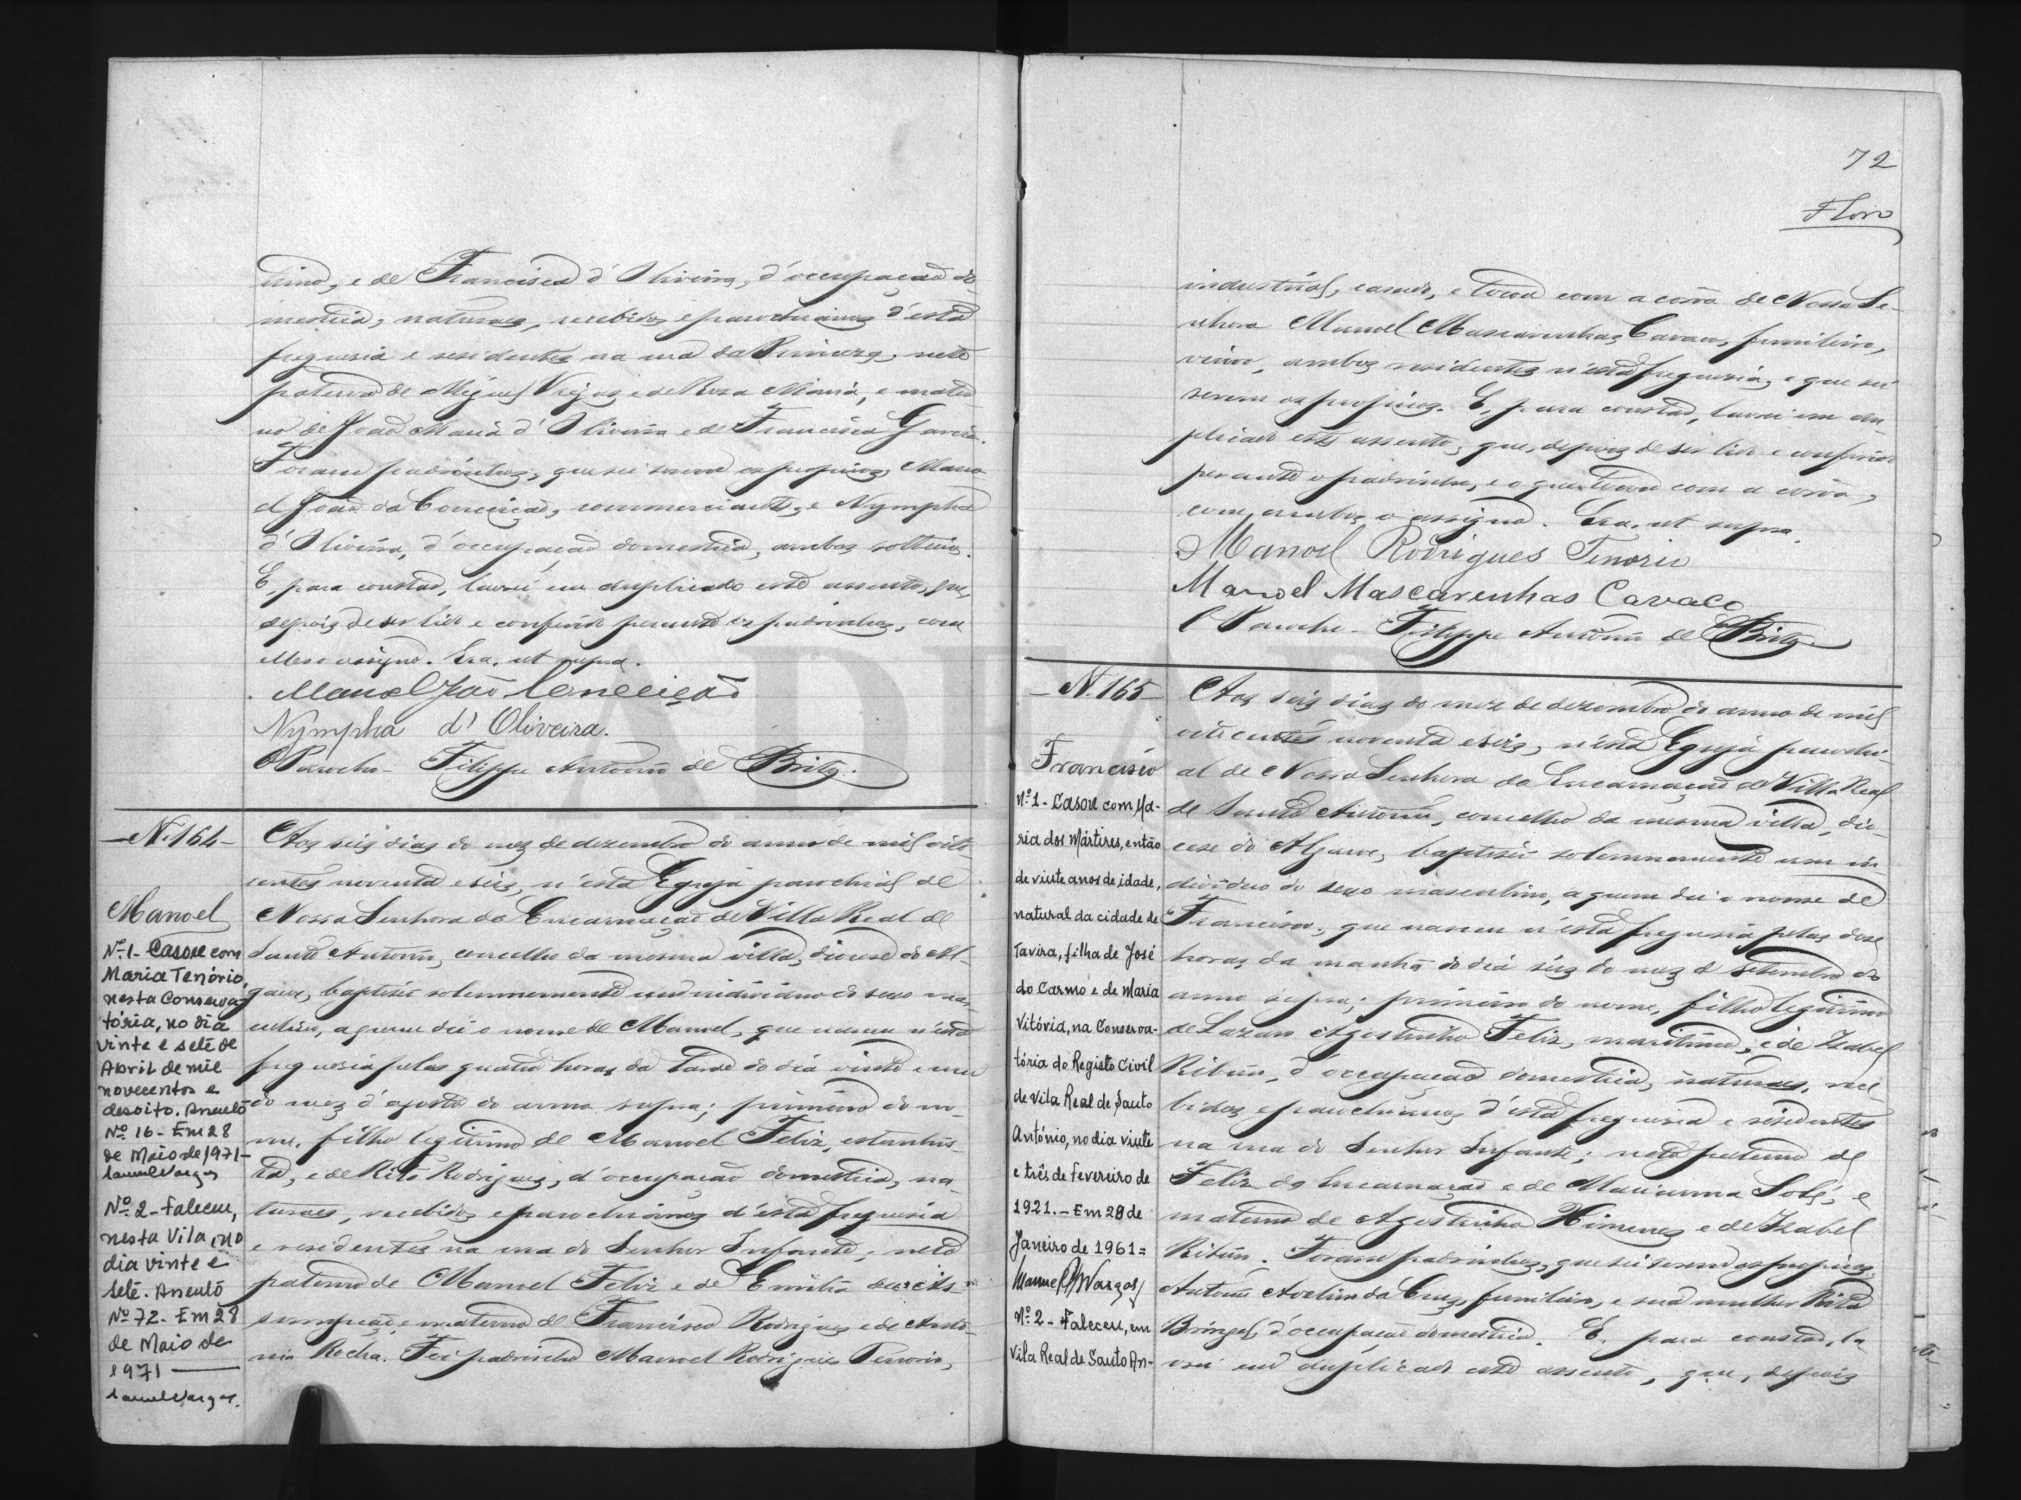 timo, e de Francisca d'Oliveira, d'occupação do-
mestica, naturaes, recebidos e parochianos d'esta
freguesia e residentes na rua da Princeza, neto
paterno de Miguel Viegas e de Rosa Maria, e mater-
no de João Maria d'Oliveira e de Francisca Garcia.
Foram padrinhos, que sei serem os proprios, Mano-
el João da Conceição, commerciante, e Nympha
d'Oliveira, d'occupação domestica, ambos solteiros.
E, para constar, lavrei em duplicado este assento, que,
depois de ser lido e conferido perante os padrinhos, com
elles o assigno. Era, ut supra.
Manoel João Conceição
Nympha d'Oliveira.
O Parocho - Filippe Antonio de Brito.
N. 164
Manoel
Nº 1 - Casou com
Maria Tenório,
nesta Conserva-
tória, no dia
vinte e sete de
Abril de mil
novecentos e
dezoito. Aneulo
Nº 16 - Em 28
de Maio de 1971 -
Nº 2 - Faleceu,
nesta Vila, no
dia vinte e
sete. Aneulo
Nº 72 - Em 28
de Maio de
1971
Aos seis dias do mez de dezembro do anno de mil oito-
centos noventa e seis, n'esta Egreja parochial de
Nossa Senhora da Encarnação de Villa Real de
Santo Antonio, concelho da mesma villa, diocese do Al-
garve, baptisei solemnemente um individuo do sexo mas-
culino, a quem dei o nome de Manoel, que nasceu n'esta
freguesia pelas quatro horas da tarde do dia vinte e um
do mez d'agosto do anno supra; primeiro do no-
me, filho legitimo de Manoel Feliz, estanhis-
ta, e de Rita Rodrigues, d'occupação domestica, na-
turaes, recebidos e parochianos d'esta freguesia
e residentes na rua do Senhor Infante; neto
paterno de Manoel Feliz e de Emilia da As-
sumpção, e materno de Francisco Rodrigues e de Anto-
nia Rocha. Foi padrinho Manoel Rodrigues Tenorio,
72
industrial, casado, e tocou com a corôa de Nossa Se-
nhora Manoel Mascarenhas Cavaco, funileiro,
viuvo, ambos residentes n'esta freguesia, e que sei
serem os proprios. E, para constar, lavrei em du-
plicado este assento, que, depois de ser lido e conferido
perante o padrinho, e o que tocou com a corôa,
com ambos o assigno. Era, ut supra.
Manoel Rodrigues Tenorio
Manoel Mascarenhas Cavaco
O Parocho - Filippe Antonio de Brito.
N. 165
Francisco
Nº 1 - Casou com Ma-
ria dos Mártires, então
de vinte anos de idade,
natural da cidade de
Tavira, filha de José
do Carmo e de Maria
Vitória, na Conserva-
tória do Registo Civil
de Vila Real de Santo
António, no dia vinte
e três de Fevereiro de
1921. - Em 28 de
Janeiro de 1961 =
Nº 2 - Faleceu, em
Vila Real de Santo An-
Aos seis dias do mez de dezembro do anno de mil
oitocentos noventa e seis, n'esta Egreja parochi-
al de Nossa Senhora da Encarnação de Villa Real
de Santo Antonio, concelho da mesma villa, dio-
cese do Algarve, baptisei solemnemente um in-
dividuo do sexo masculino, a quem dei o nome de
Francisco, que nasceu n'esta freguesia pelas doze
horas da manhã do dia seis do mez de setembro do
anno supra; primeiro do nome, filho legitimo
de Lazaro Agostinho Feliz, maritimo, e de Izabel
Ribeiro, d'occupação domestica, naturaes, rece-
bidos e parochianos d'esta freguesia e residentes
na rua do Senhor Infante; neto paterno de
Feliz da Encarnação e de Marianna Solé, e
materno de Agostinho Ximenes e de Izabel
Ribeiro. Foram padrinhos, que sei serem os proprios,
Antonio Avelino da Cruz, funileiro, e sua mulher Rita
d'occupação domestica. E, para constar, la-
vrei em duplicado este assento, que, depois
ADFAR